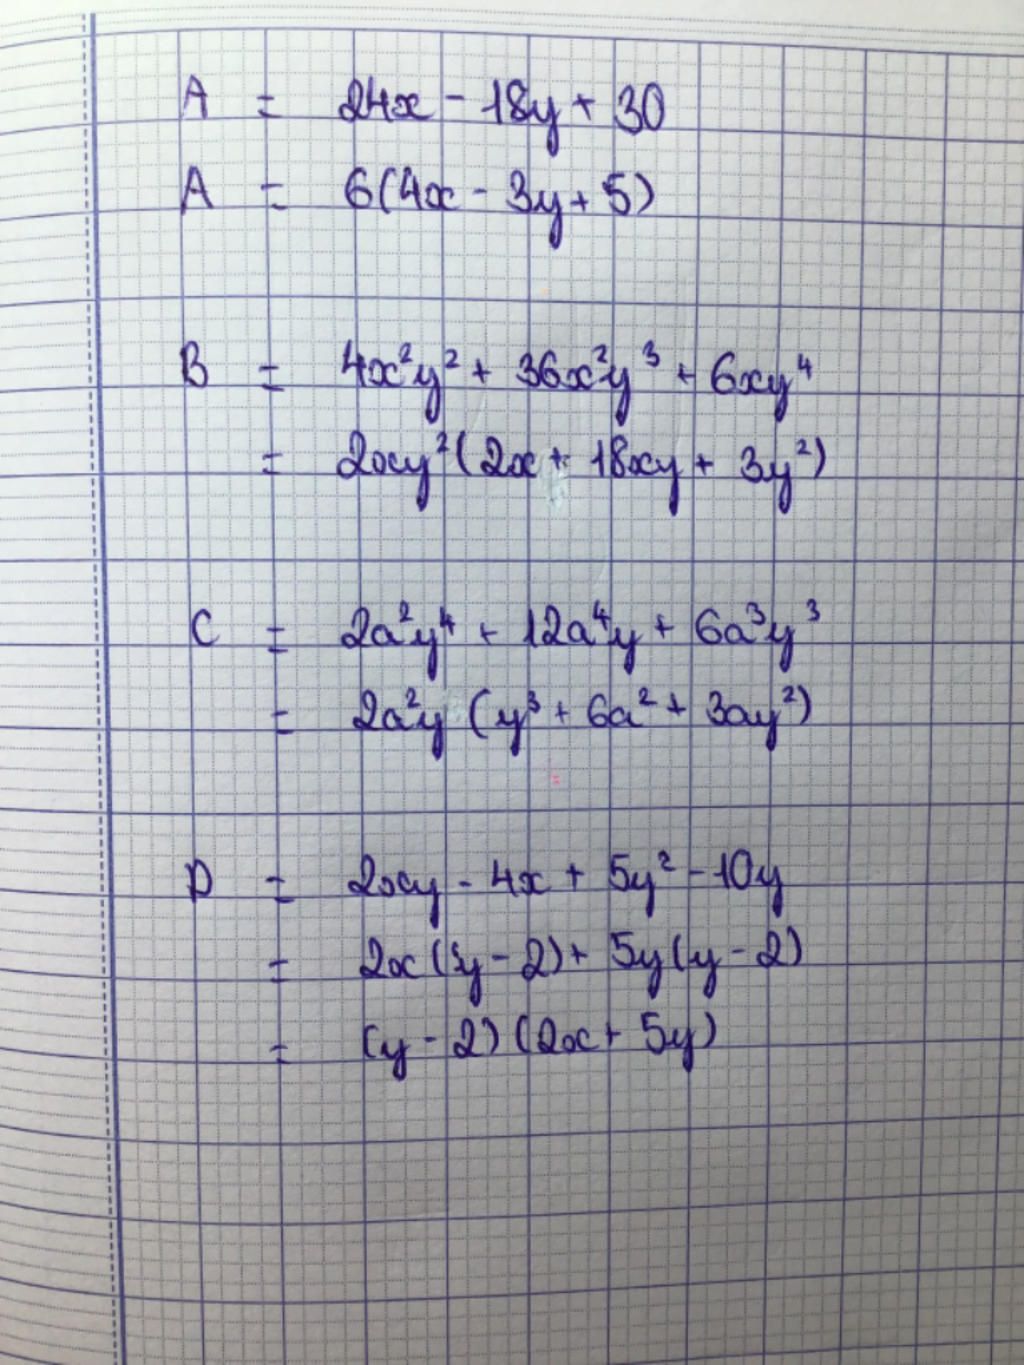 A = 24x - 18y + 30
A = 6(4x - 3y + 5)
B = 4x²y² + 36x²y³ + 6xy⁴
= 2xy²(2x + 18xy + 3y²)
C = 2a²y⁴ + 12a⁴y + 6a³y³
= 2a²y (y³ + 6a² + 3ay²)
D = 2xy - 4x + 5y² - 10y
= 2x(y - 2) + 5y(y - 2)
= (y - 2)(2x + 5y)